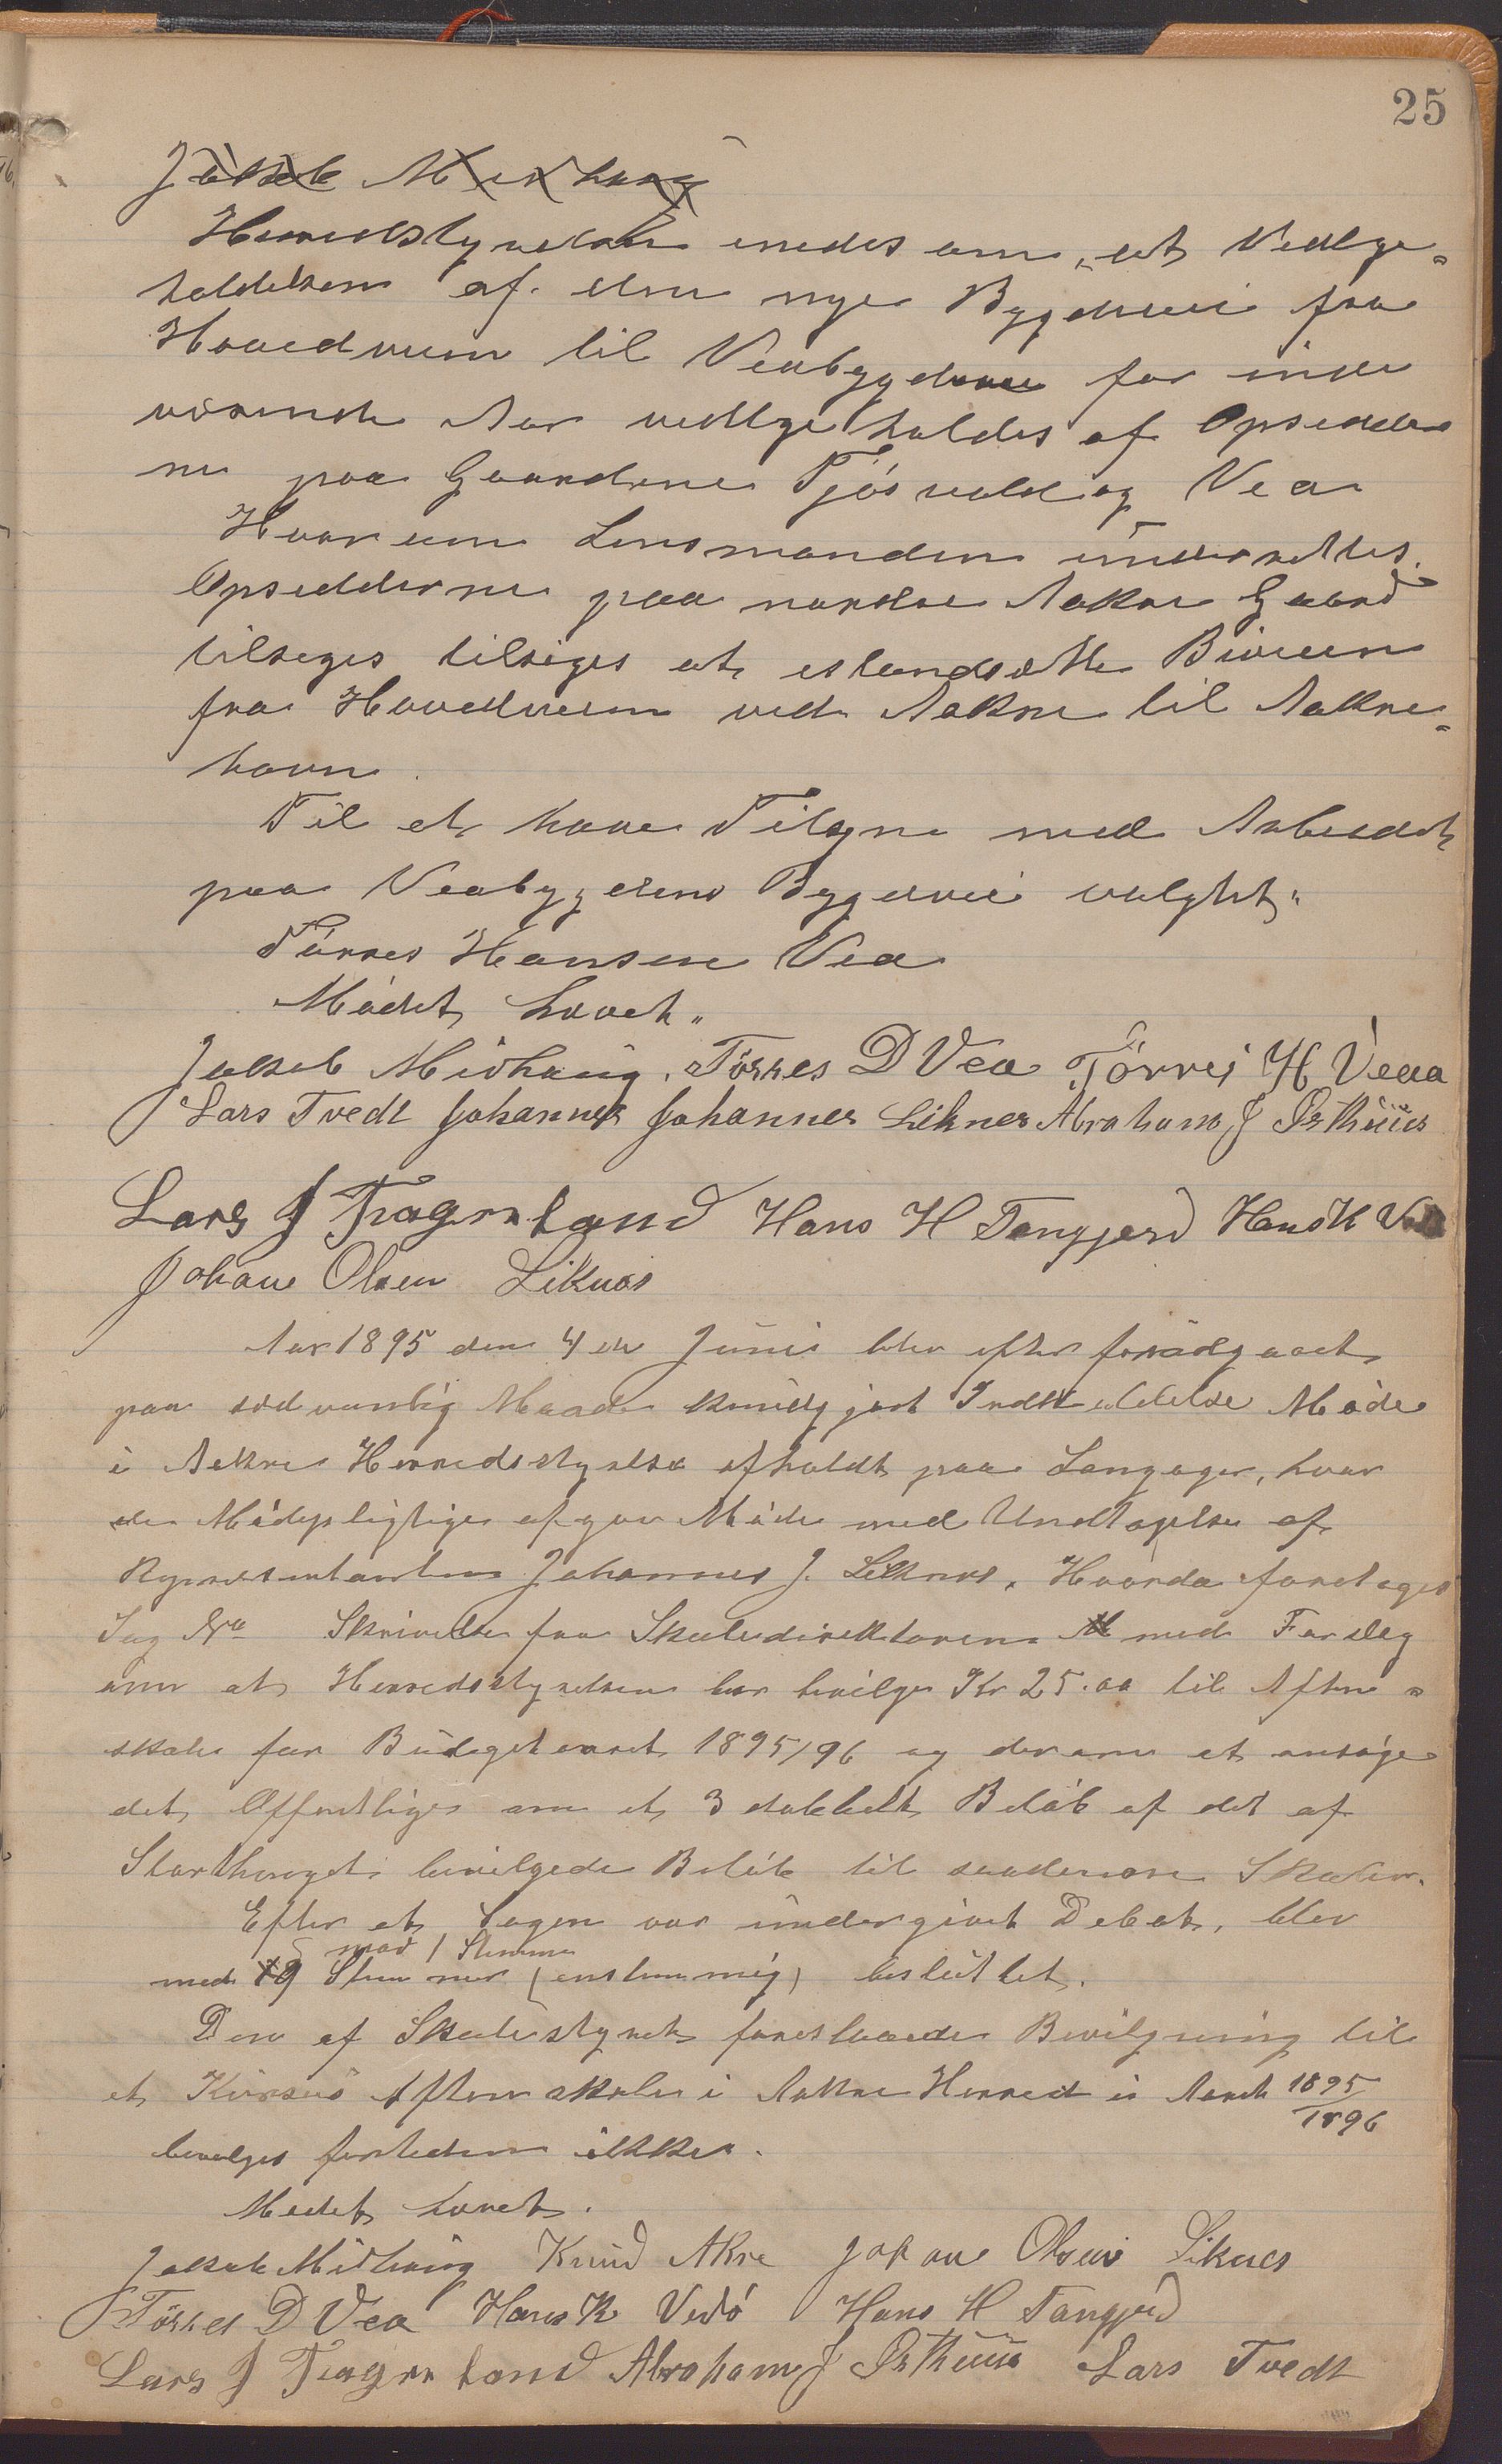 25
Jakob Midhaug
Herredstyrelsen enedes om, at Vedlige=
holdelsen af den nye Bygdevei fra
Hovedveien til Veabygden for inde
værende Aar vedligeholdes af Opsidder
ne paa Gaardene Tjösvold og Vea
Hvorom Lensmanden underrettes.
Opsidderne paa nordre Aakre Gaard
tilseges tilsiges at istandsætte Biveien
fra Hovedveien ved Aakre til Aakre=
havn.
Til at have Tilsyn med Arbeidet
paa Veabygdens Bygdevei valgtes
Törres Hansen Vea
Mödet hævet.
Jakob Midhaug. Törres D Vea Törres H Veaa
Lars Tvedt Johannes Johannes Liknes Abraham J Østhuus
Lars J Tragerhand Hans H Tangjerd Hans K
Johan Olsen Liknes
Aar 1895 den 4de Juni blev efter foradgaaet
paa sedvanlig Maade kundgjort Indkaldelse Möde
i Aakre Herredsstyrelse afholdt paa Langager, hvor
de Mödepligtige afgav Möde med Undtagelse af
Repræsentanten Johannes J. Liknes. Hvorda foretages
Sag No Skrivelse fra Skoledirektören med Forslag
om at Herredsstyrelsen bör bevilge Kr 25.00 til Aften=
skole for Budgetaaret 1895/96 og derom at ansöge
det Offentlige om et 3 dobbelt Belöb af det af
Storthinget bevilgede Belöb til saadanne Skoler.
Efter at Sagen var undergivet Debat, blev
mod 1 Stemme
med 9 Stemmer (enstemmig) besluttet.
Den af Skolestyret foreslaaede Bevilgning til
et Kursus Aftenskole i Aakre Herred i Aaret 1895/1896
bevilges forleden ikke.
Mödet hævet.
Jakob Midhaug Knud Akre Johan Olsen Liknes
Törres D Vea Hans K Vedö Hans H Tangjerd
Lars J Tragerhand Abraham J Østhuus Lars Tvedt